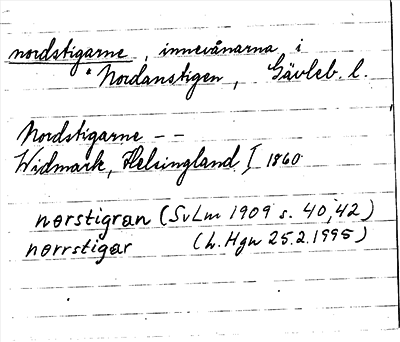 nordstigarne, innevånarna i
Nordanstigen, Gävleb. l.
Nordstigarne - -
Widmark, Helsingland I 1860
norstigran (SvLm 1909 s. 40, 42)
norrstigar (L. Hgn 25.2.1995)